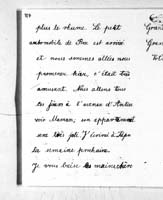 plus le rhume. Le petit
automobile de Bee est arrivé
et nous sommes allés nous
promener hier, c'était très
amusant. Nous allons tous
les jours à l'avenue d'Antin
voir Maman; un appartement
est très joli. J'écrirai à Papa
la semaine prochaine.
Je vous baise les mains chère
Gran